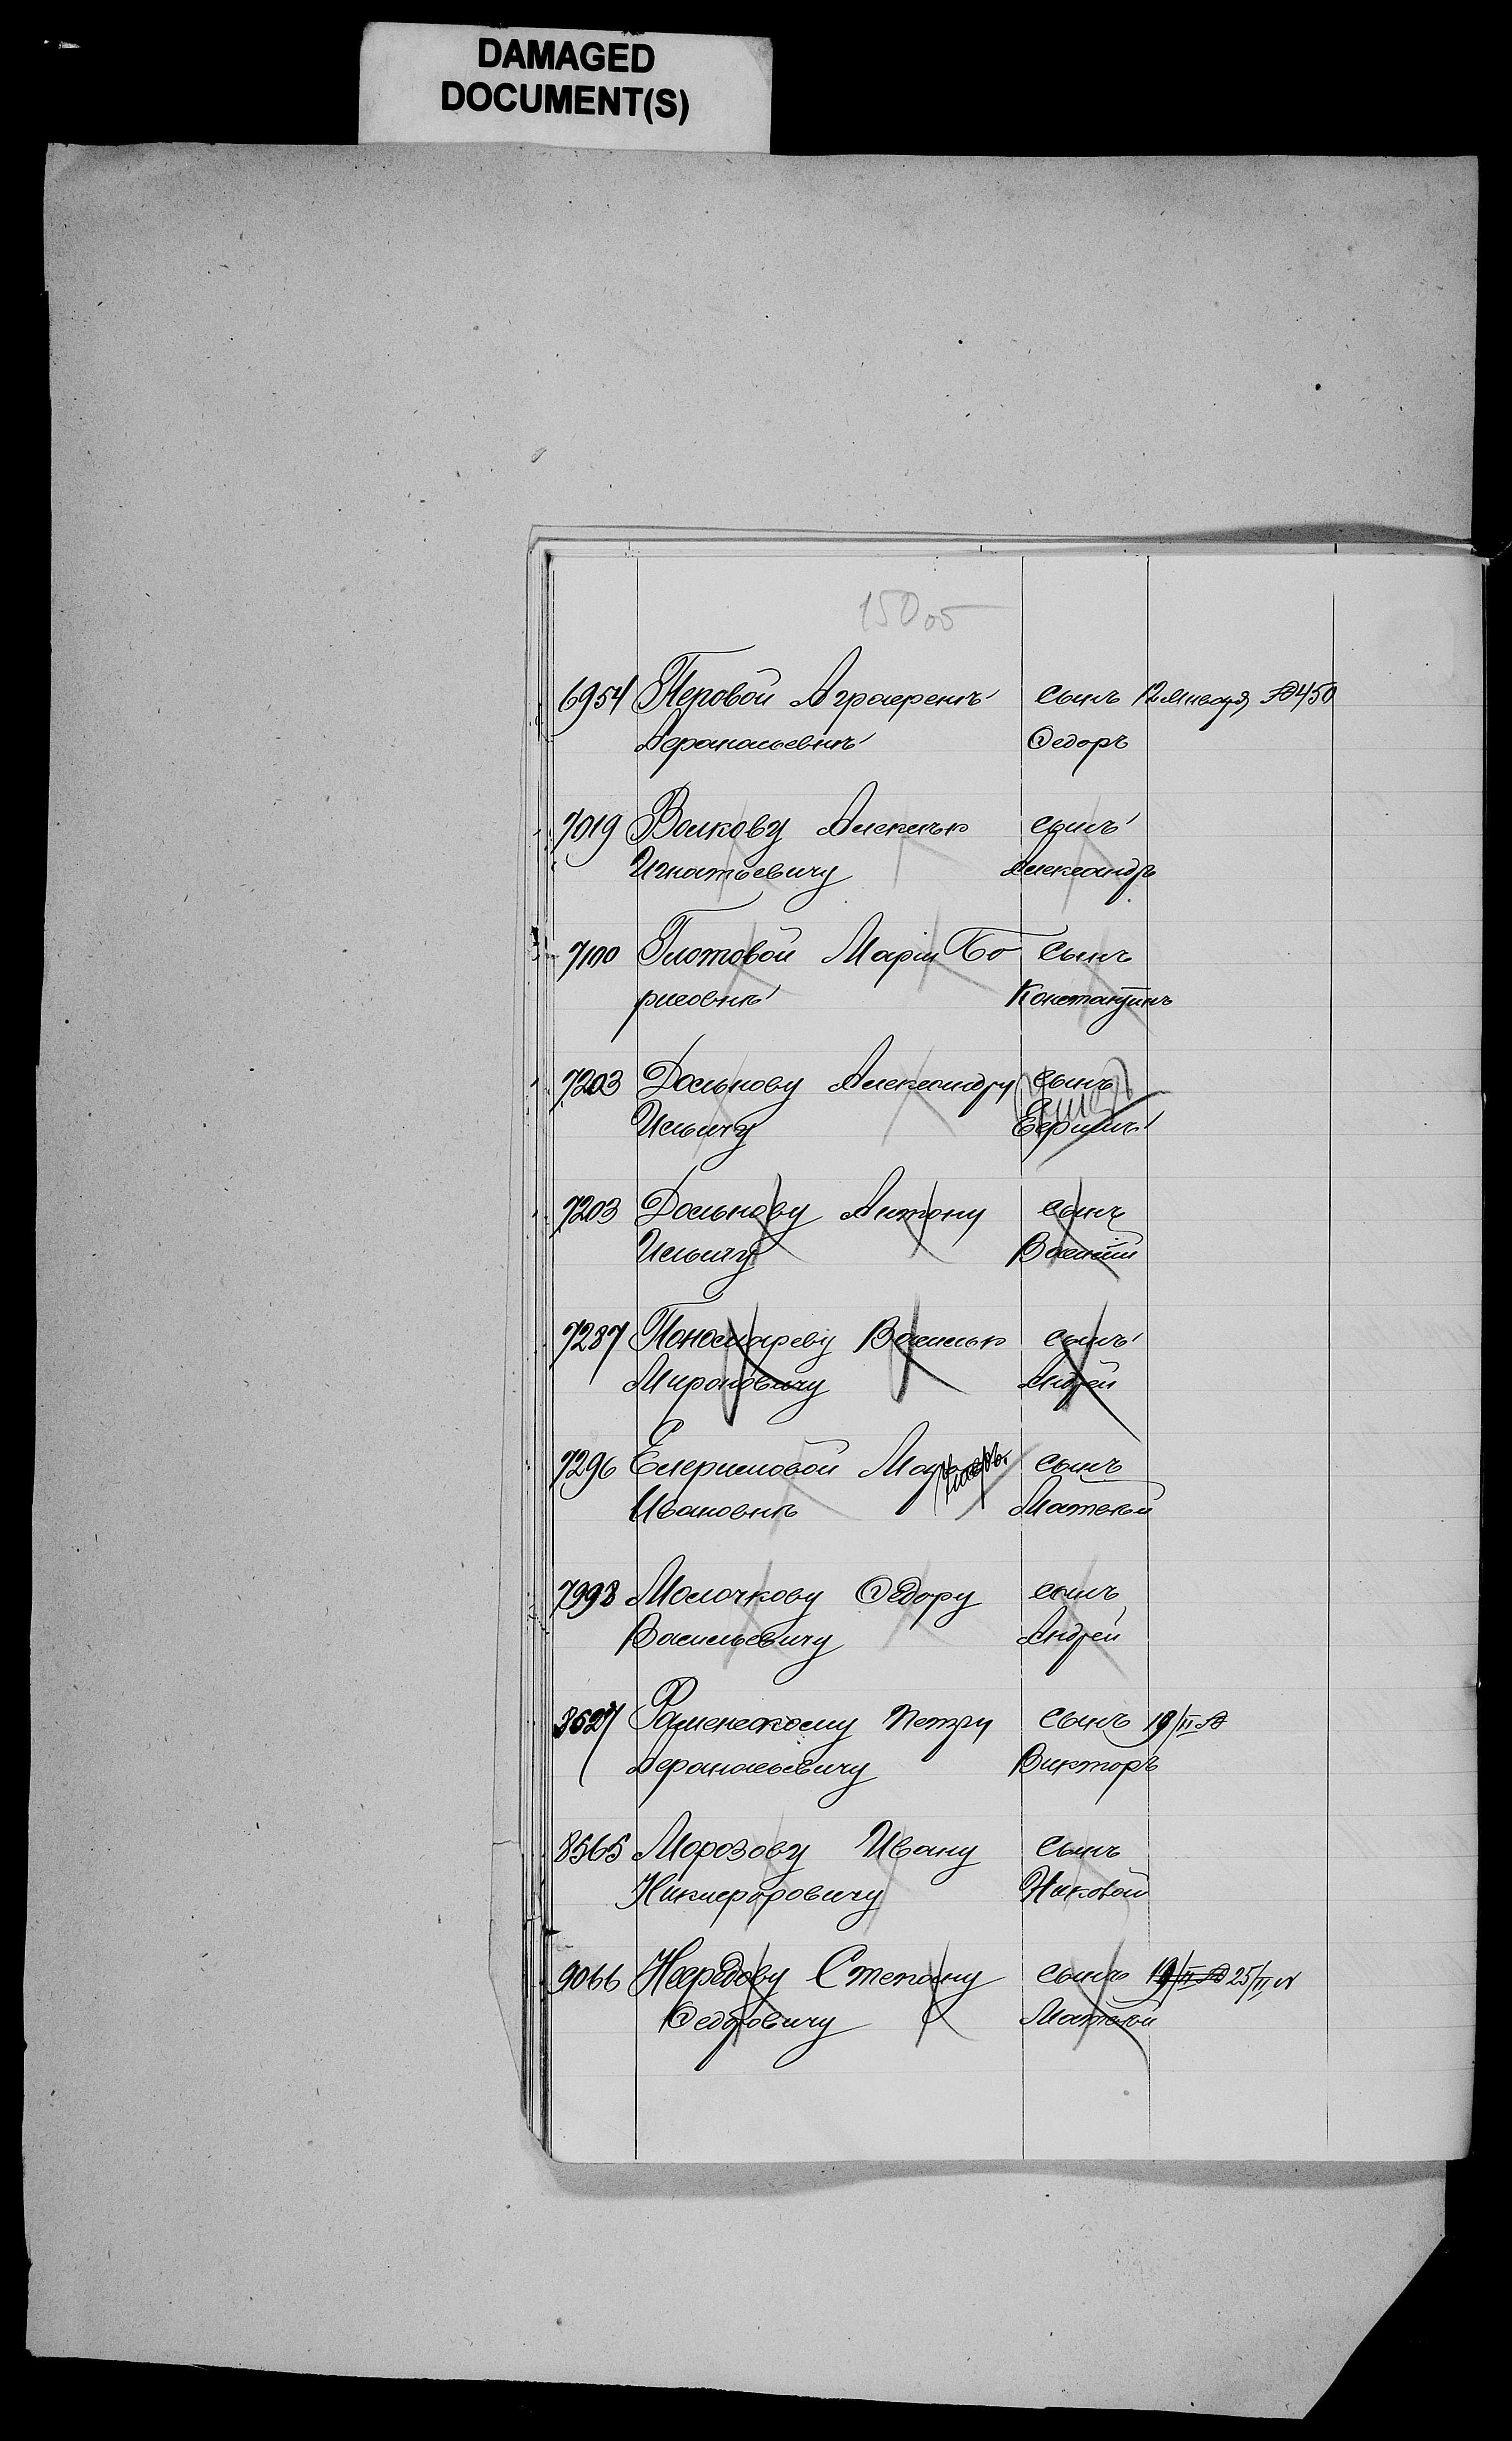 DAMAGED
DOCUMENT(S)
150 05
6954 Перовой Аграфенѣ сынъ 12 января 450
Афанасьевнѣ Федоръ
7019 Волкову Алексѣю сынъ
Игнатьевичу Александръ
7100 Глотовой Маріи Бо сынъ
рисовнѣ Константинъ
7203 Досынову Александру сынъ
Ильичу Ефимъ
7203 Досынову Антону сынъ
Ильичу Василій
7287 Пономареву Василію сынъ
Мироновичу Андрей
7296 Ивановнѣ сынъ
Матвѣй
7998 Молочкову Федору сынъ
Васильевичу Андрей
8527 Раменскому Петру сынъ 19/II
Афанасьевичу Викторъ
8565 Морозову Ивану сынъ
Никифоровичу Николай
9066 Нефедову Степану сынъ 19/II 25/II
Федоровичу Матвѣй